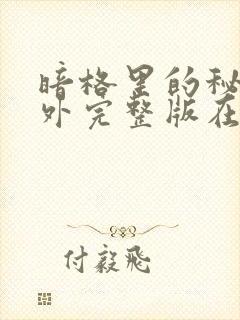 暗格里的秘
外完整版在
付毅飛